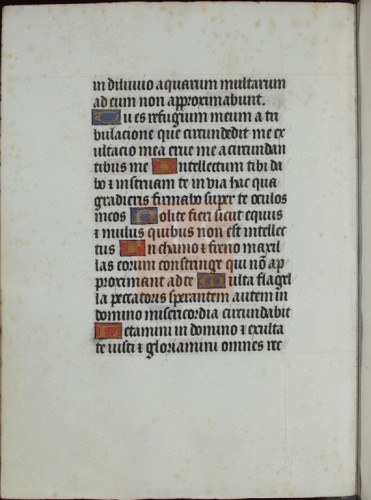 in diluuio aquarum multarum
ad eum non approximabunt.
Tu es refugium meum a tri
bulacione que circundedit me ex
ultacio mea erue me a circundan
tibus me Intellectum tibi da
bo ⁊ instruam te in via hac qua
gradieris firmabo super te oculos
meos Nolite fieri sicut equus
⁊ mulus quibus non est intellec
tus In chamo ⁊ freno maxil
las eorum constringe qui nō ap
proximant ad te Multa flagel
la peccatoris sperantem autem in
domino misericordia circundabit
Letamini in domino ⁊ exulta
te iusti ⁊ gloriamini omnes rec